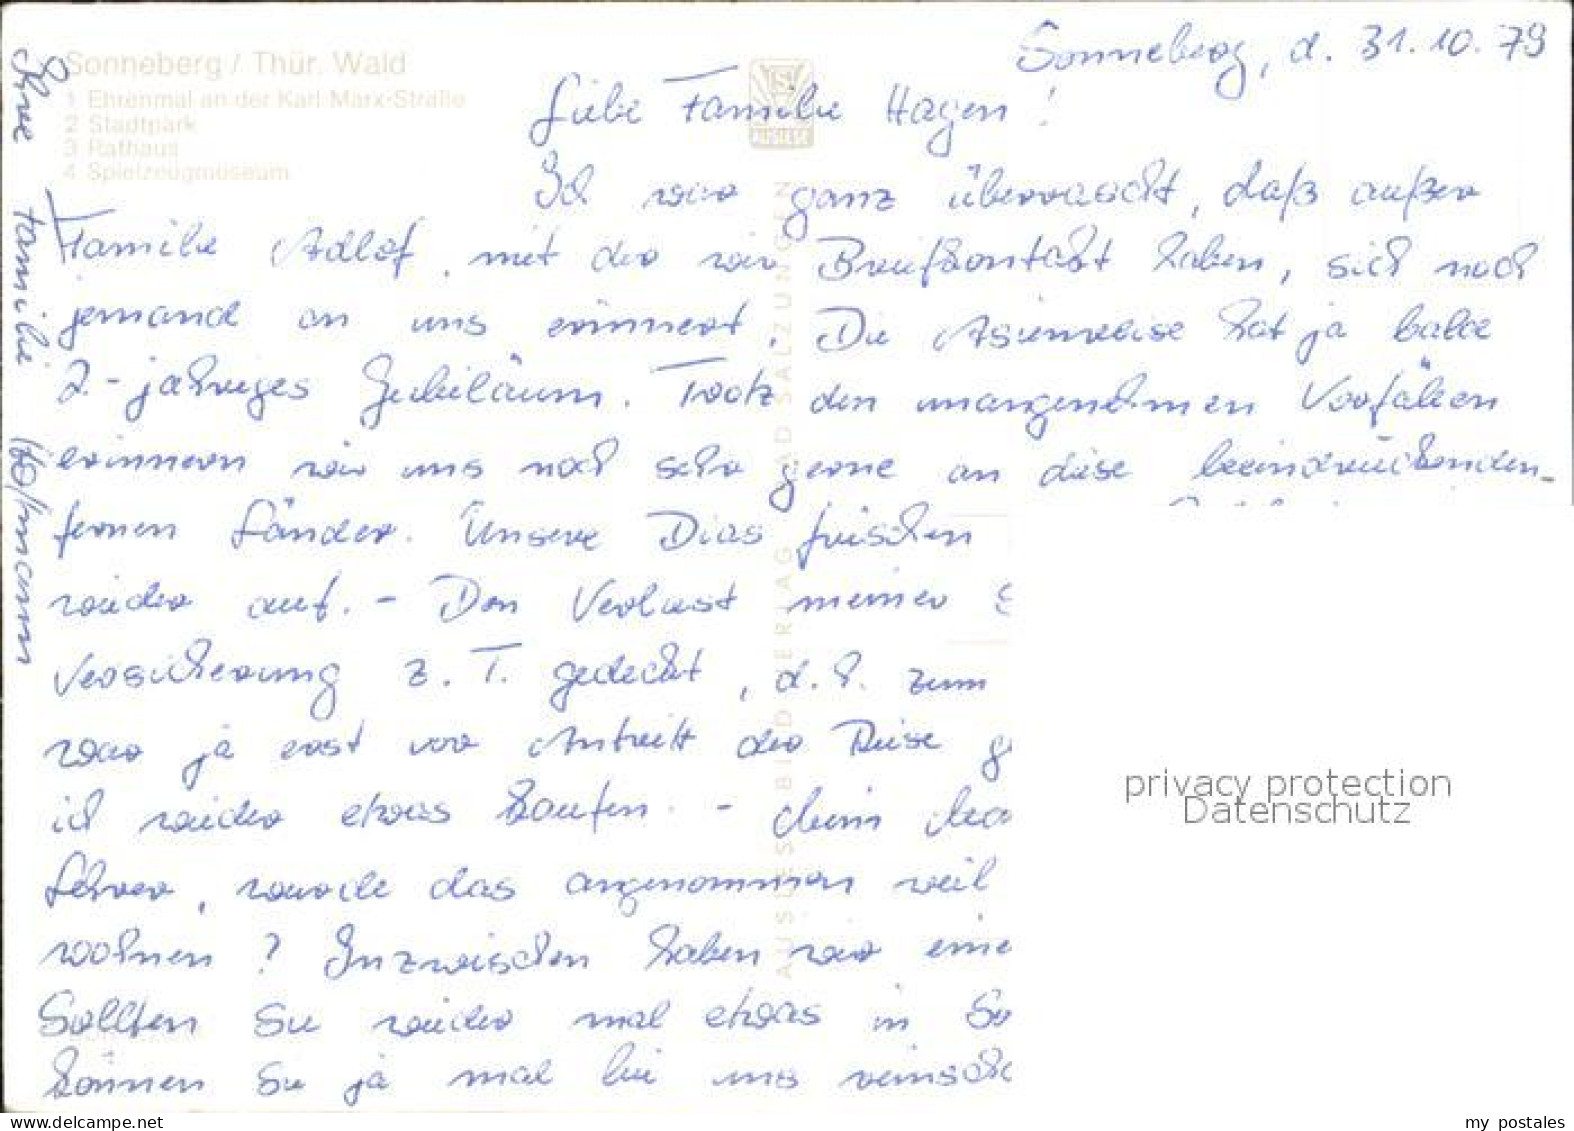 Sonneberg / Thür. Wald
1 Ehrenmal an der Karl-Marx-Straße
2 Stadtpark
3 Rathaus
4 Spielzeugmuseum
AUSLESE
AUSLESE-BILD-VERLAG BAD SALZUNGEN
Sonneberg, d. 31.10.79
Liebe Familie Hagen!
Ich war ganz überrascht, daß außer
Familie Adlof, mit der wir Briefkontakt haben, sich noch
jemand an uns erinnert. Die Asienreise hat ja bald
2.-jähriges Jubiläum. Trotz den unangenehmen Vorfällen
erinnern wir uns noch sehr gerne an diese beeindruckenden
fernen Länder. Unsere Dias frischen
wieder auf. - Den Verlust meiner
Versicherung z. T. gedeckt, d. h. zum
war ja erst vor Antritt der Reise
ich wieder etwas kaufen. -
Lehrer, wurde das angenommen weil
wohnen? Inzwischen haben wir eine
Sollten Sie wieder mal etwas in So
können Sie ja mal bei uns reinsch
Ihre Familie
privacy protection
Datenschutz
www.delcampe.net
my postales